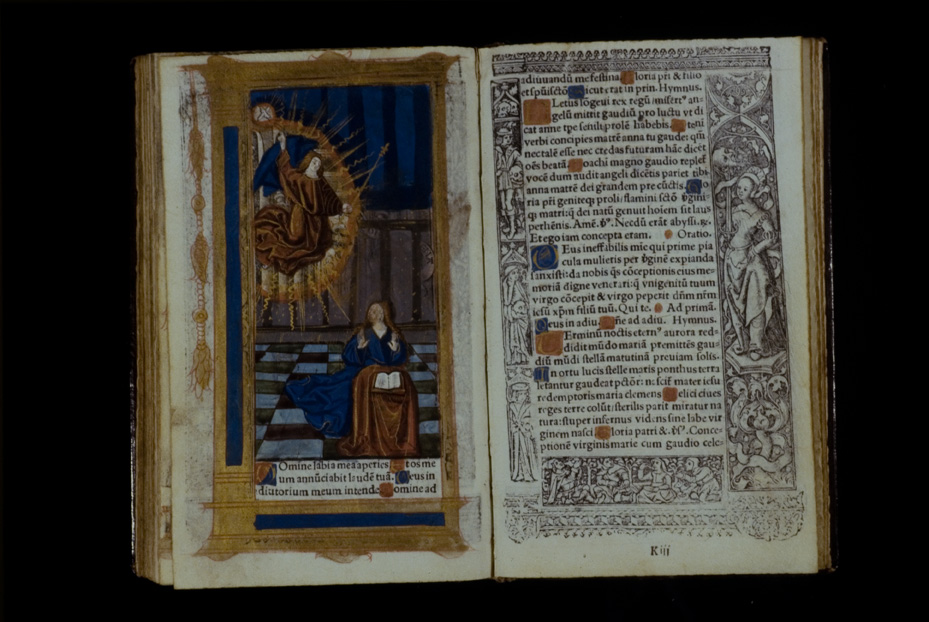 Omine labia mea aperies. Et os me
um annūciabit laudē tuā. Deus in
adiutorium meum intende Domine ad
adiuuandū me festina. Gloria pri & filio
et spūiscto Sicut erat in prin. Hymnus.
Letus rex regū
gelū mittit gaudiū pro luctu vt di
cat anne tpe senili prolē habebis.
verbi concipies matrē anna tu gaudei
nec talē esse nec credas futuram hāc dicēt
oēs beatā. Ioachi magno gaudio replet
vocē dum audit angeli dicētis pariet tibi
anna matrē dei grandem pre cūctis. Glo
ria pri genitoqȝ proli flamini sctō
matri q̄ dei natū genuit hoiem sit laus
perhēnis. Amē. ꝟ. Nec dū erāt abyssi. ꝶ.
Et ego iam concepta eram. Oratio.
Deus ineffabilis mie qui prime pia
cula mulieris per ꝟginē expianda
sanxisti: da nobis qs cōceptionis eius me=
moriā digne venerari: q̄ vnigenitū tuum
virgo cōcepit & virgo peperit dn̄m nr̄m
iesū xp̄m filiū tuū. Qui te. Ad primā.
Deus in adiu. Dn̄e ad adiu. Hymnus.
Terminū noctis etern⁹ aurora red=
didit mūdo mariā premittēs gau=
diū mūdi stellā matutinā preuiam solis.
In ortu lucis stelle maris ponthus terra
letantur gaudeat pctōr: scit mater iesu
redemptoris maria clemens Celici ciues
reges terre colūt: sterilis parit miratur na
tura: stupet infernus vidēs sine labe vir
ginem nasci. Gloria patri &. ꝟ. Conce=
ptionē virginis marie cum gaudio cele=
Kiij